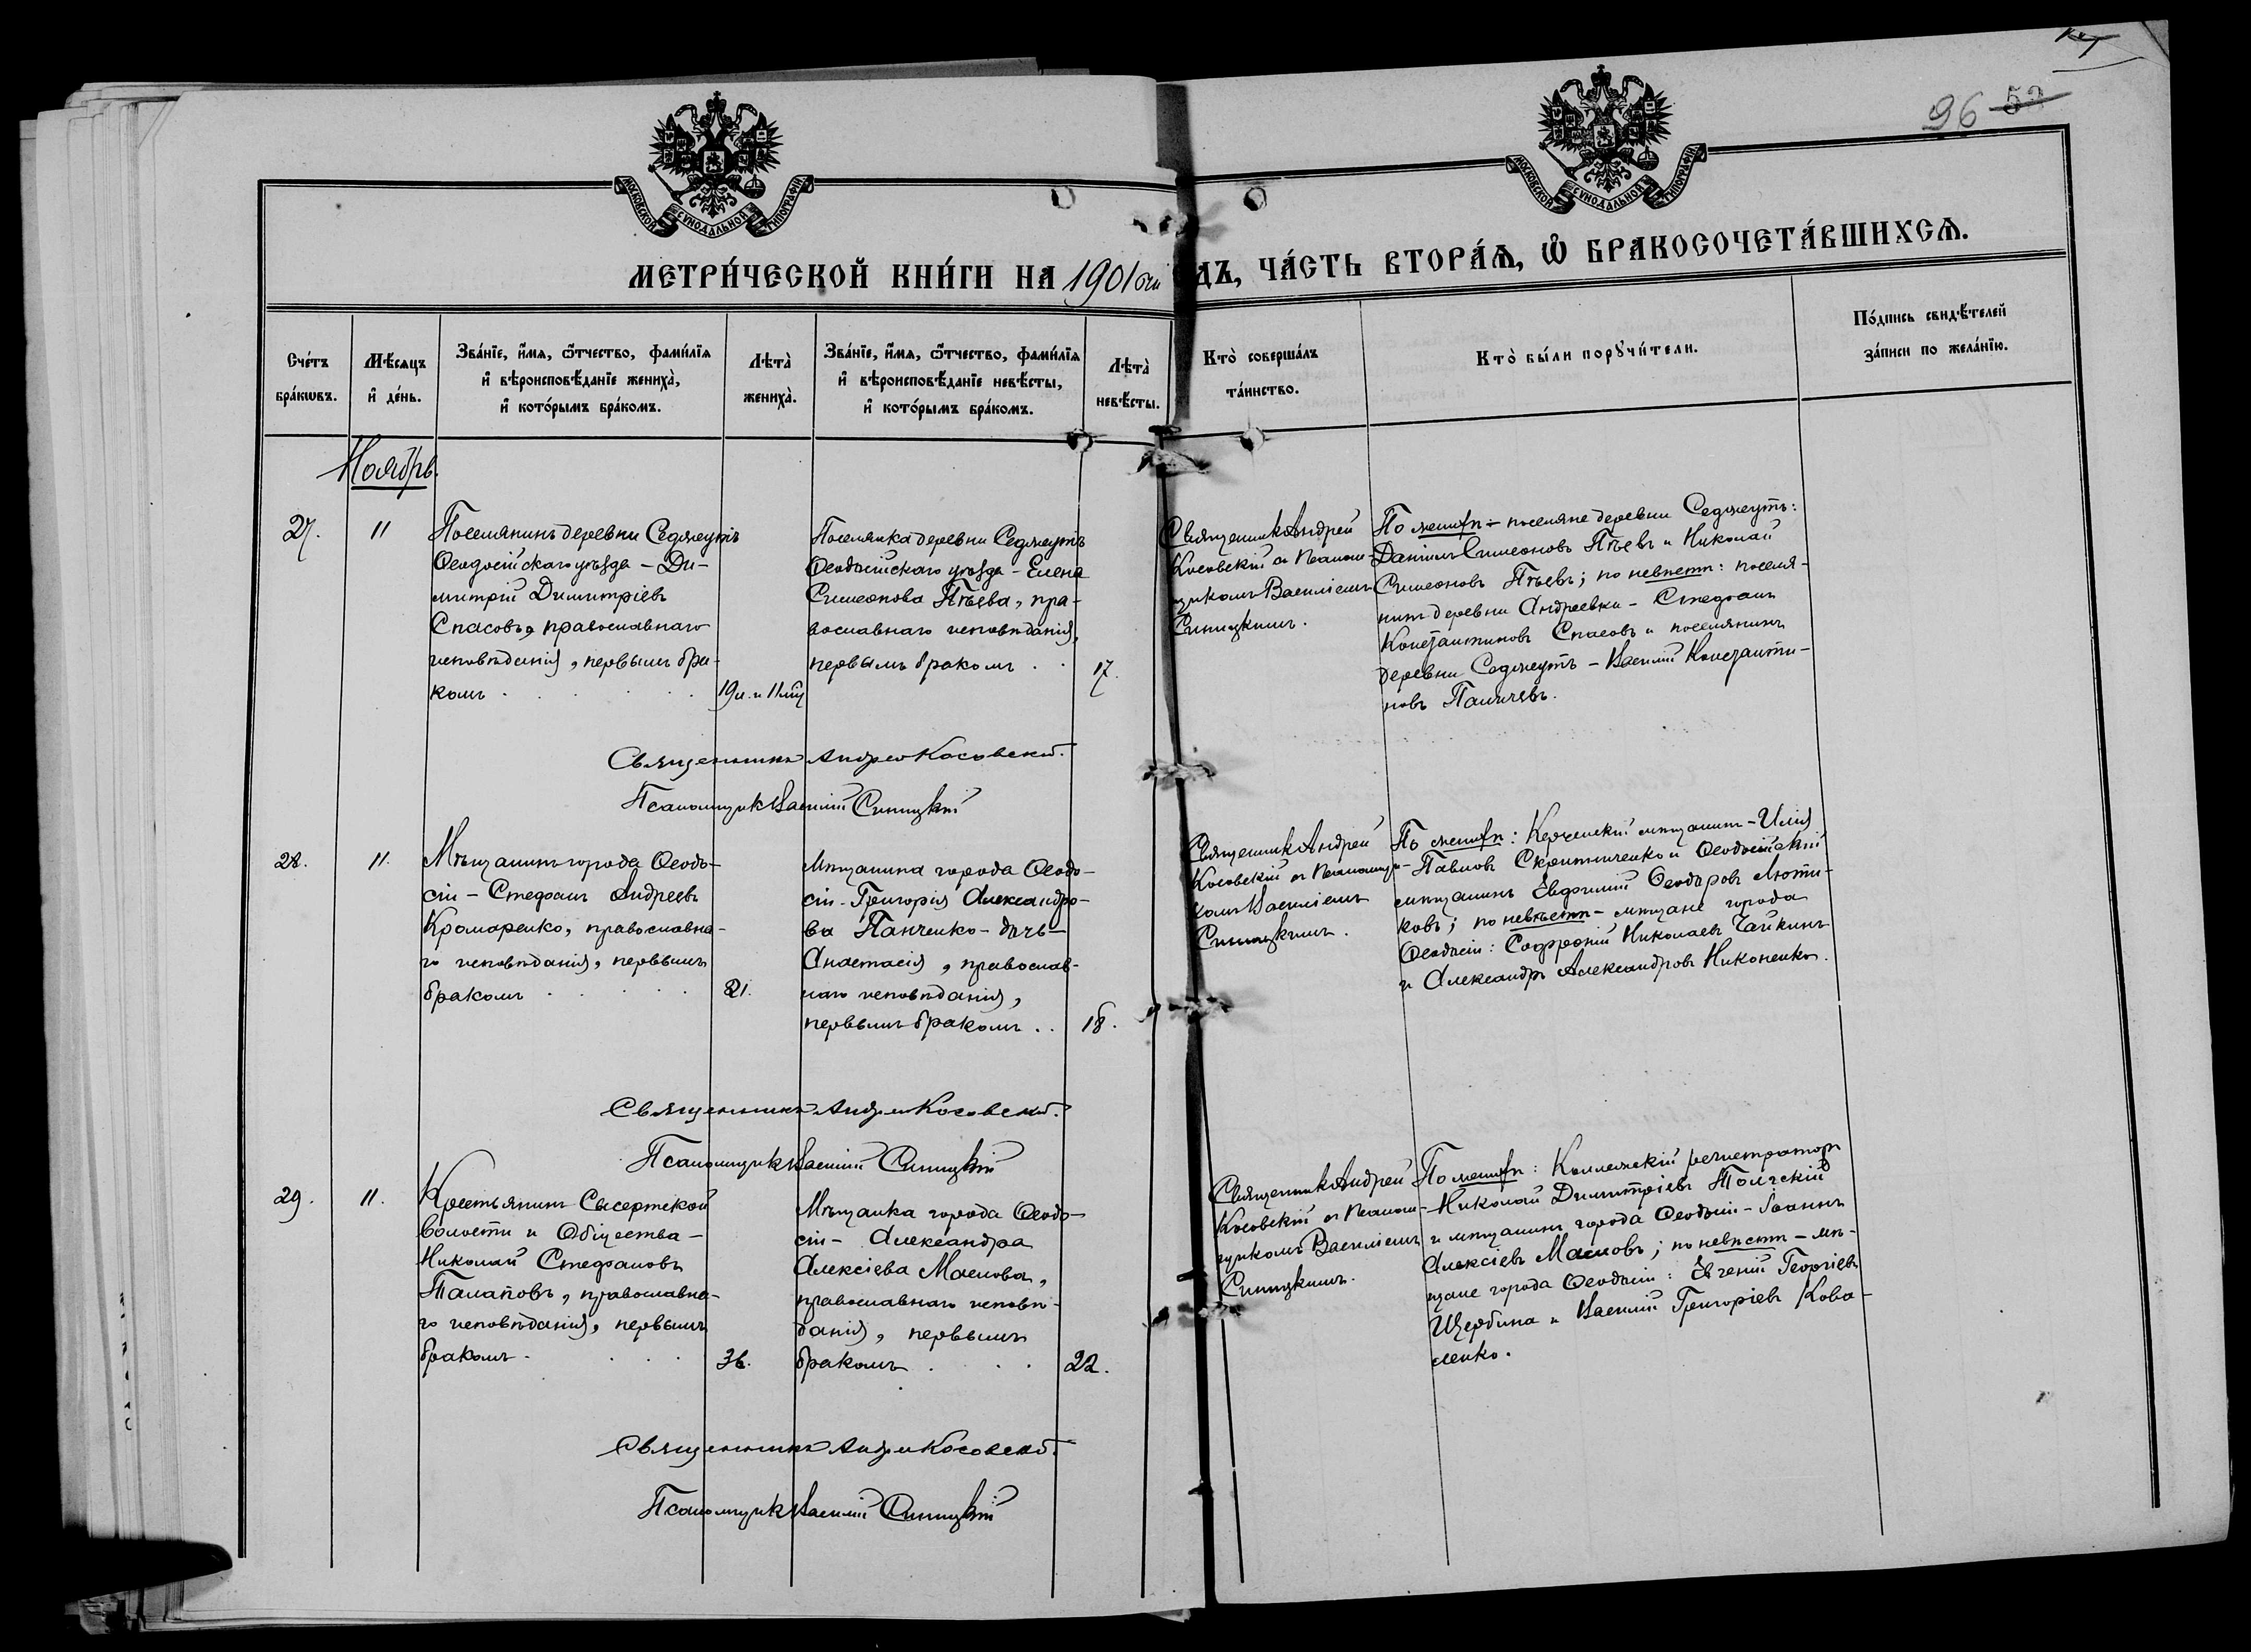 96 52
МОСКОВСКОЙ СѴНОДАЛЬНОЙ ТИПОГРАФІИ
МОСКОВСКОЙ СѴНОДАЛЬНОЙ ТИПОГРАФІИ
МЕТРИ́ЧЕСКОЙ КНИ́ГИ НА 1901 ГОДЪ, ЧА́СТЬ ВТОРА́Ѧ, Ѽ БРАКОСОЧЕТА́ВШИХСѦ.
Сче́тъ бра́кѡвъ.
Мѣ́сяцъ и҆ де́нь.
Зва́нїе, и҆́мя, ѻ҆́тчество, фами́лїя
и҆ вѣроисповѣ́данїе жениха̀,
и҆ кото́рымъ бра́комъ.
Лѣта̀ жениха̀.
Зва́нїе, и҆́мя, ѻ҆́тчество, фами́лїя
и҆ вѣроисповѣ́данїе невѣ́сты,
и҆ кото́рымъ бра́комъ.
Лѣта̀ невѣ́сты.
Кто̀ соверша́лъ
та́инство.
Кто̀ бы́ли порꙋчи́тели.
По́дпись свидѣ́телей
за́писи по жела́нїю.
Ноябрь.
27.
11
Поселянинъ деревниСеджеутъ
Ѳеодосійскаго уѣзда – Ди-
митрій Димитріевъ
Спасовъ, православнаго
исповѣданія, первымъ бра-
комъ
19 л. и 11 мѣс.
Поселянка деревни Седжеутъ
Ѳеодосійскаго уѣзда – Елена
Симеонова Пѣева, пра-
вославнаго исповѣданія,
первымъ бракомъ
17.
Священникъ Андрей
Косовскій съ Псалом-
щикомъ Василіемъ
Синицкимъ.
По женихѣ – поселяне деревни Седжеутъ:
Даніилъ Симеоновъ Пѣевъ и Николай
Симеоновъ Пѣевъ; по невѣстѣ: поселя-
нинъ деревни Андреевки – Стефанъ
Константиновъ Спасовъ и поселянинъ
деревни Седжеутъ – Василій Константи-
новъ
Священникъ Андрей Косовскій.
Псаломщикъ Василій Синицкій
28.
11.
Мѣщанинъ города Ѳеодо-
сіи – Стефанъ Андреевъ
Кромаренко, православна-
го исповѣданія, первымъ
бракомъ
21.
Мѣщанина города Ѳеодо-
сіи – Григорія Александро-
ва Панченко – дочь –
Анастасія, православ-
наго исповѣданія,
первымъ бракомъ
18.
Священникъ Андрей
Косовскій съ Псаломщи-
комъ Василіемъ
Синицкимъ.
По женихѣ: Керченскій мѣщанинъ – Илія
Павловъ Скритниченко и Ѳеодосійскій
мѣщанинъ Евфимій Ѳеодоровъ Люти-
ковъ; по невѣстѣ – мѣщане города
Ѳеодосіи: Софроній Николаевъ Чайкинъ
и Александръ Александровъ Никоненко.
Священникъ Андрей Косовскій.
Псаломщикъ Василій Синицкій
29.
11.
Крестьянинъ Сысертской
волости и Общества –
Николай Стефановъ
Талаповъ, православна-
го исповѣданія, первымъ
бракомъ
36.
Мѣщанка города Ѳеодо-
сіи – Александра
Алексіева Маслова,
православнаго исповѣ-
данія, первымъ
бракомъ
22.
Священникъ Андрей
Косовскій съ Псалом-
щикомъ Василіемъ
Синицкимъ.
По женихѣ: Коллежскій регистраторъ
Николай Димитріевъ
и мѣщанинъ города Ѳеодосіи – Іоаннъ
Алексіевъ Масловъ; по невѣстѣ – мѣ-
щане города Ѳеодосіи: Евгеній Георгіевъ
Щербина и Василій Григоріевъ Кова-
ленко.
Священникъ Андрей Косовскій.
Псаломщикъ Василій Синицкій